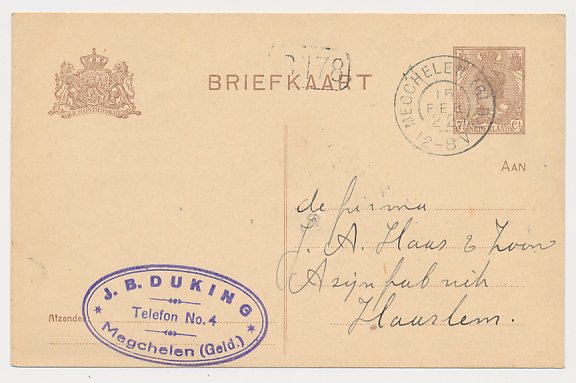 JE MAINTIENDRAI
BRIEFKAART
MEGCHELEN (GLD)
15
FEB
22
12-8V
NEDERLAND
AAN
de firma
J. A. Haas & Zoon
Azijnfabriek
Haarlem.
Afzender:
J. B. DUKING
Telefoon No. 4
Megchelen (Geld.)